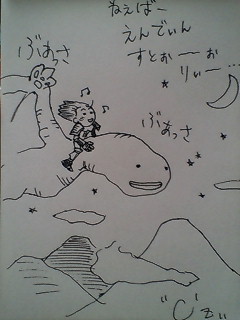 ねえばー
えんでぃん
すとぉーぉ
りぃー…
ぶあっさ
ぶあっさ
"C'z"